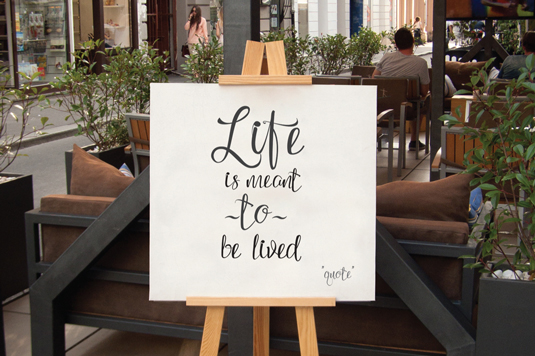 Life
is meant
~to~
be lived
"quote"